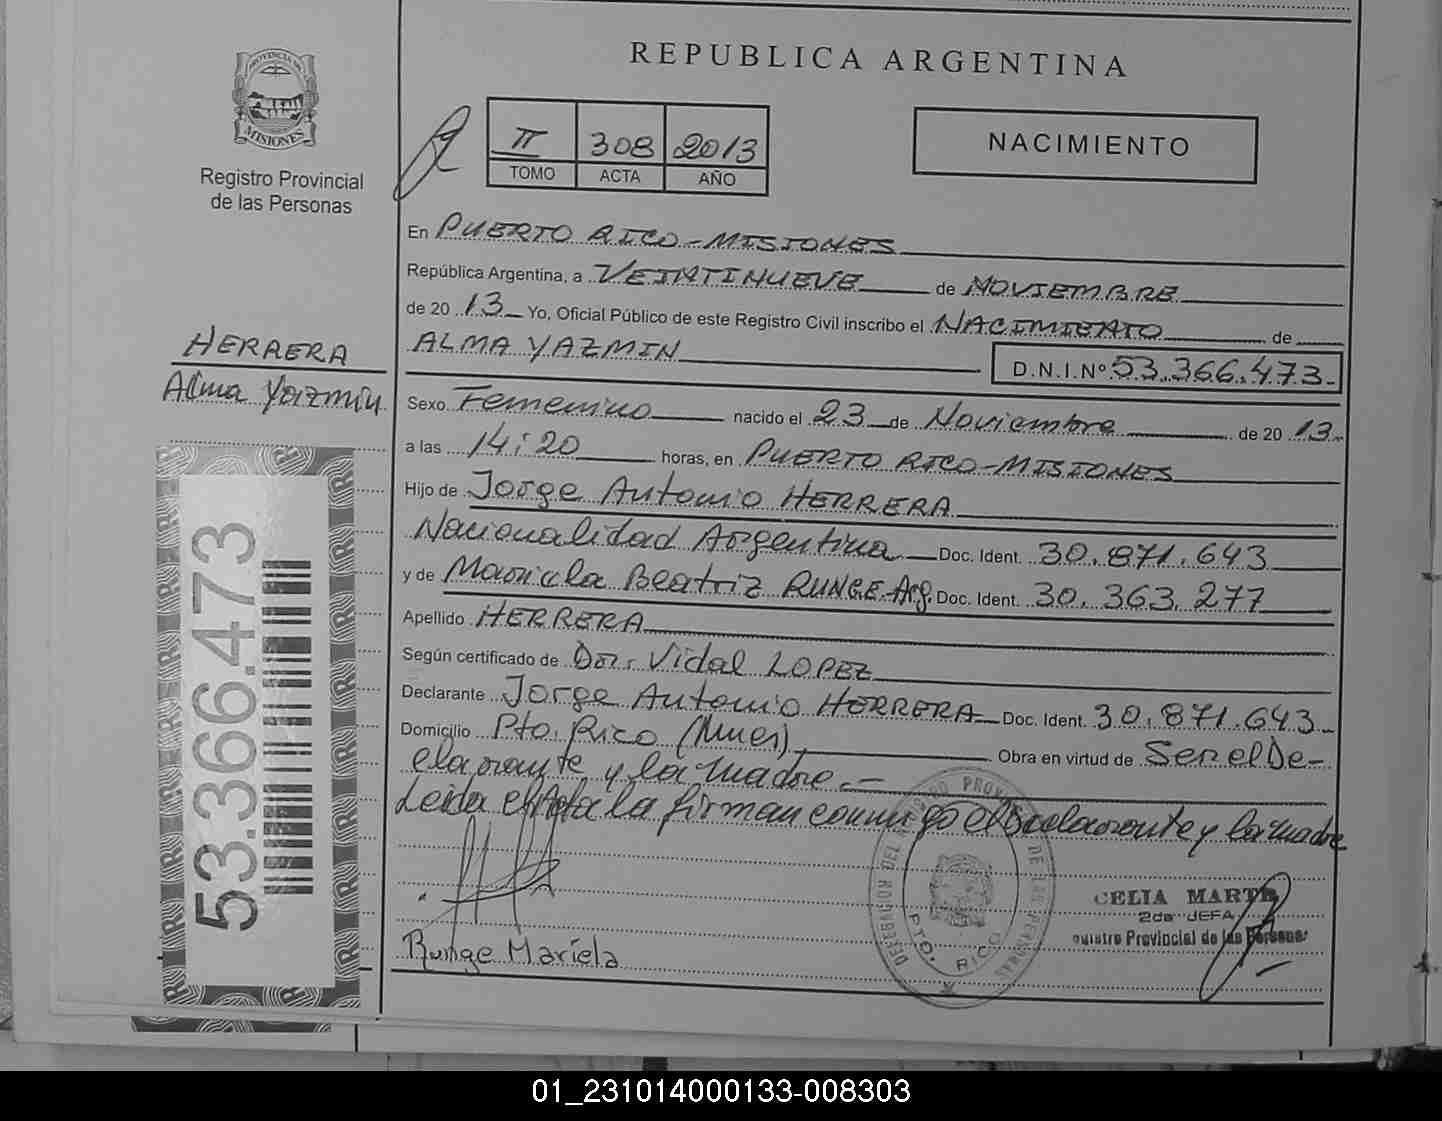 REPUBLICA ARGENTINA
PROVINCIA DE
MISIONES
Registro Provincial
de las Personas
II 308 2013
TOMO ACTA AÑO
NACIMIENTO
En PUERTO RICO-MISIONES
República Argentina, a VEINTINUEVE de NOVIEMBRE
de 20 13 Yo, Oficial Público de este Registro Civil inscribo el NACIMIENTO de
ALMA YAZMIN D.N.I.Nº 53.366.473.-
HERRERA
Alma Yazmin
Sexo Femenino nacido el 23 de Noviembre de 20 13.-
a las 14:20 horas, en PUERTO RICO-MISIONES
Hijo de Jorge Antonio HERRERA
Nacionalidad Argentina Doc. Ident. 30.871.643
y de Mariela Beatriz RUNGE-Arg. Doc. Ident. 30.363.277
Apellido HERRERA
Según certificado de Dor. Vidal LOPEZ
Declarante Jorge Antonio HERRERA Doc. Ident. 30.871.643-
Domicilio Pto. Rico (Mnes) Obra en virtud de Ser el De-
clarante y la madre.-
Leida el Acta la firman conmigo el Declarante y la madre
53.366.473
Runge Mariela
PTO. RICO
CELIA MARTA
2da JEFA
Registro Provincial de las Personas
01_231014000133-008303